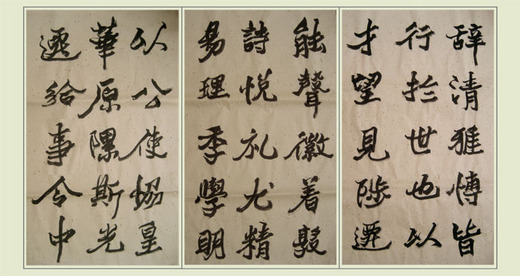 辞清雅愽皆
行於世也以
才望見陟遷
能聲徽着敦
詩悦礼尤精
易理季學明
以公使恊皇
華原隰斯光
遷給事令中